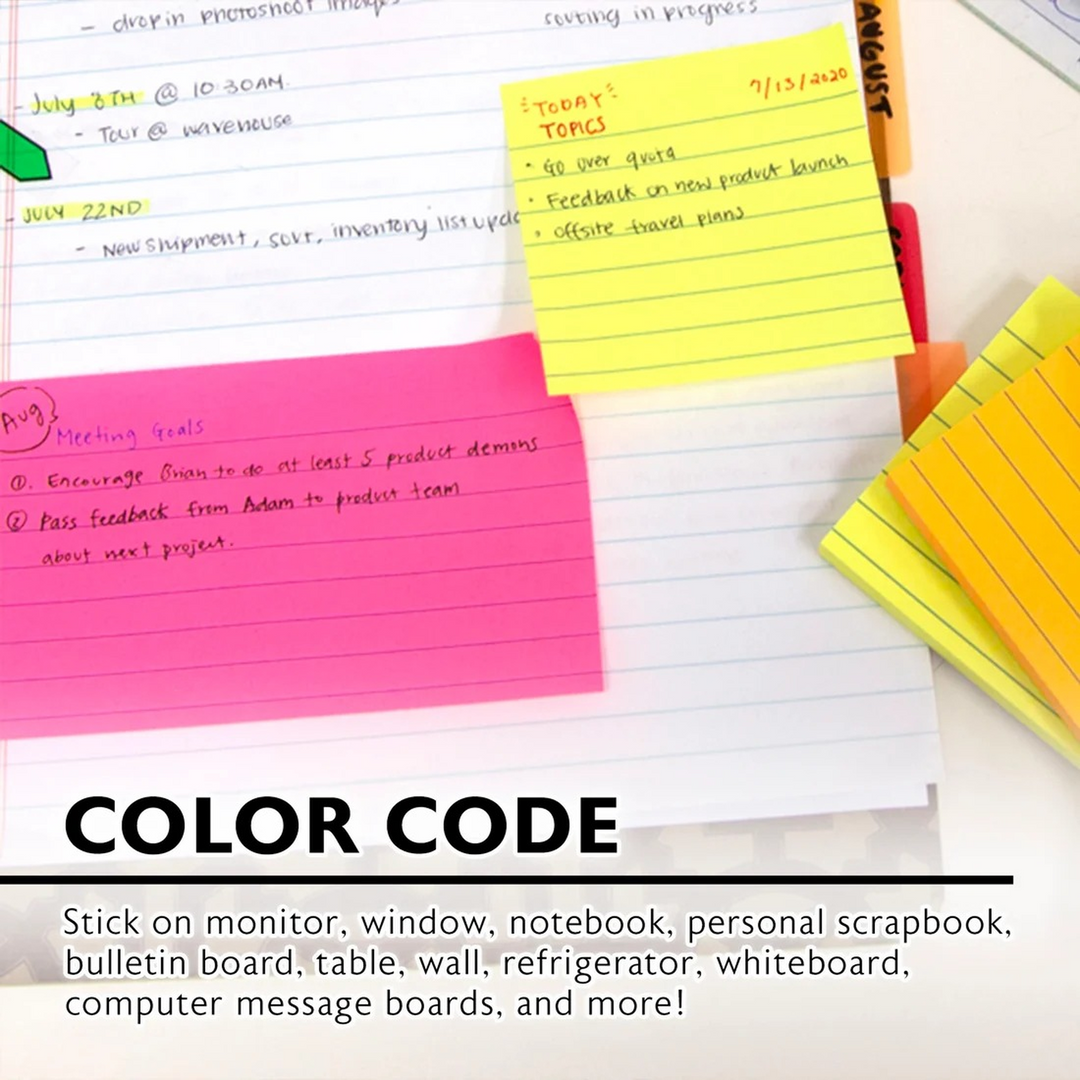 - drop in photoshoot images
routing in progress
- July 8TH @ 10:30AM.
- Tour @ wavehouse
- JULY 22ND
- New shipment, sort, inventory list upda
TODAY
TOPICS
7/13/2020
• Go over quota
• Feedback on new product launch
• Offsite travel plans
ANGUST
Aug
Meeting Goals
①. Encourage Brian to do at least 5 product demons
② Pass feedback from Adam to product team
about next project.
COLOR CODE
Stick on monitor, window, notebook, personal scrapbook,
bulletin board, table, wall, refrigerator, whiteboard,
computer message boards, and more!